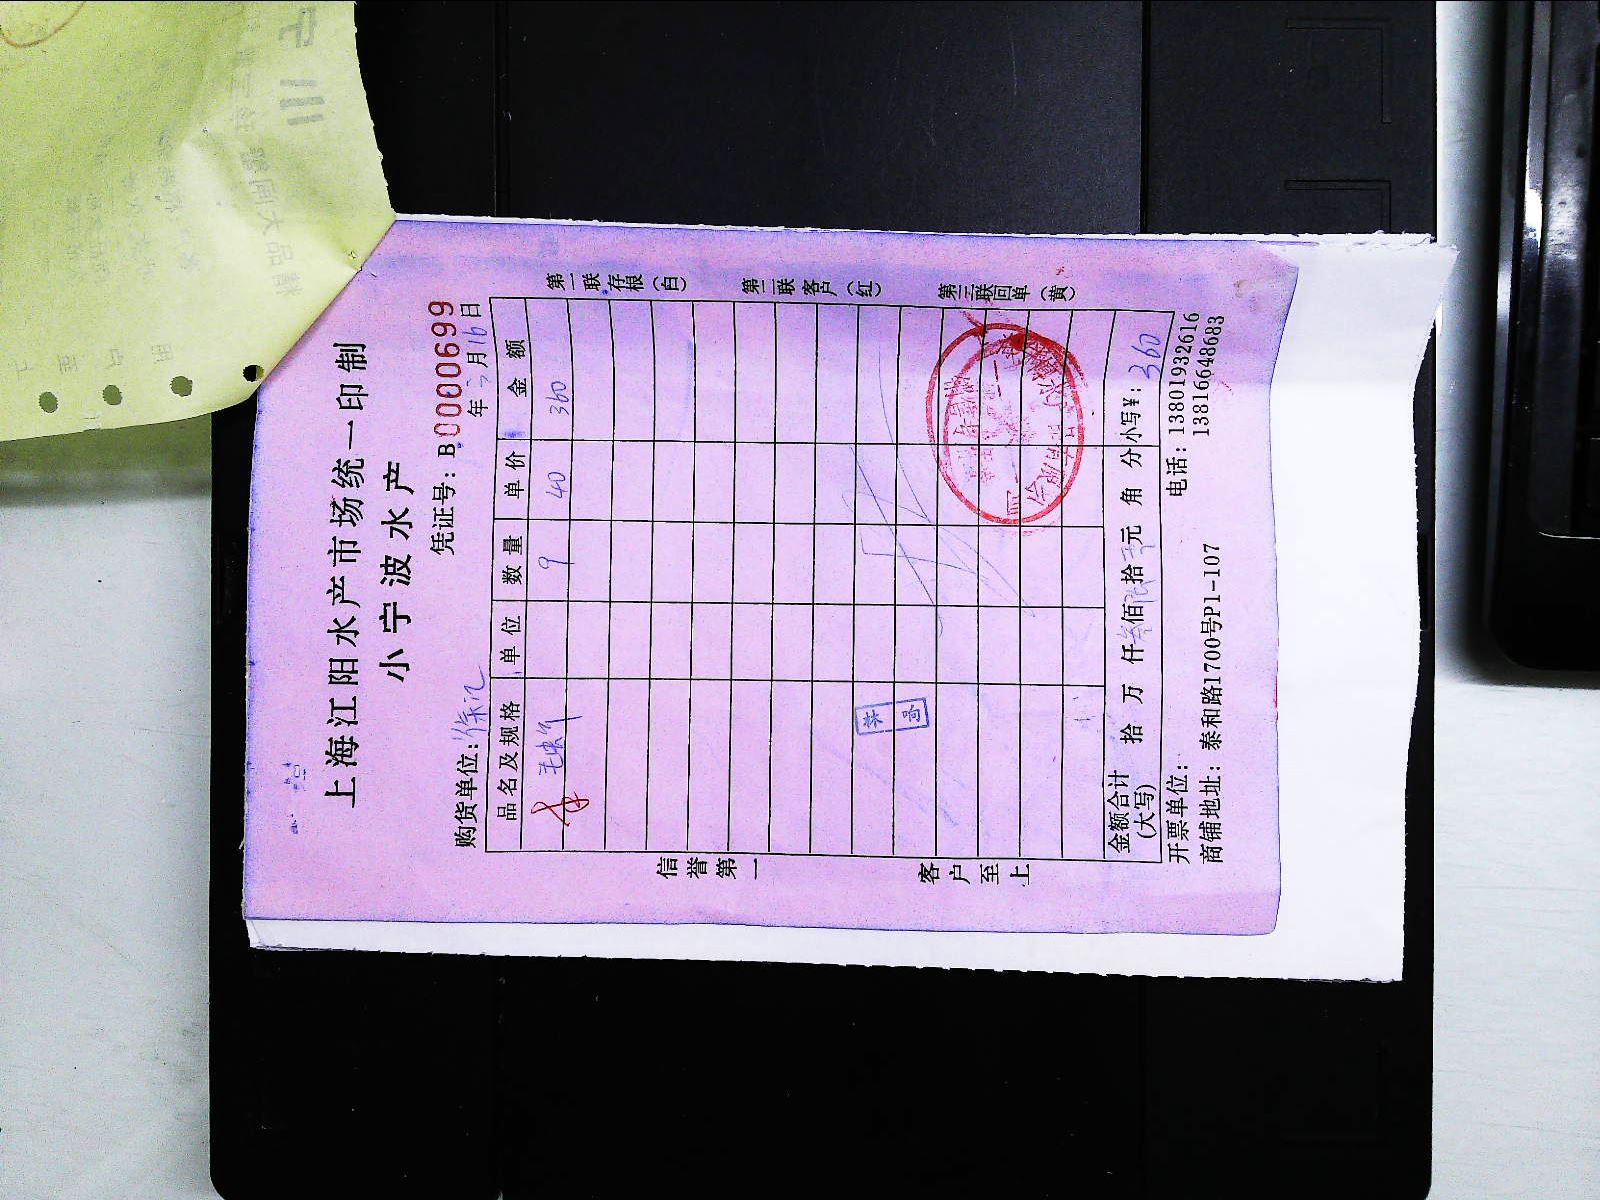 上海江阳水产市场统一印制
小宁波水产
凭证号：B0000699
购货单位：徐记 年3月16日
品名及规格 单位 数量 单价 金额
毛蚶 9 40 360
金额合计(大写) 拾 万 仟叁佰陆拾 元 角 分 小写¥：360
开票单位： 电话：13801932616
商铺地址：泰和路1700号P1-107 13816648683
信誉第一
客户至上
第一联存根（白）
第二联客户（红）
第三联回单（黄）